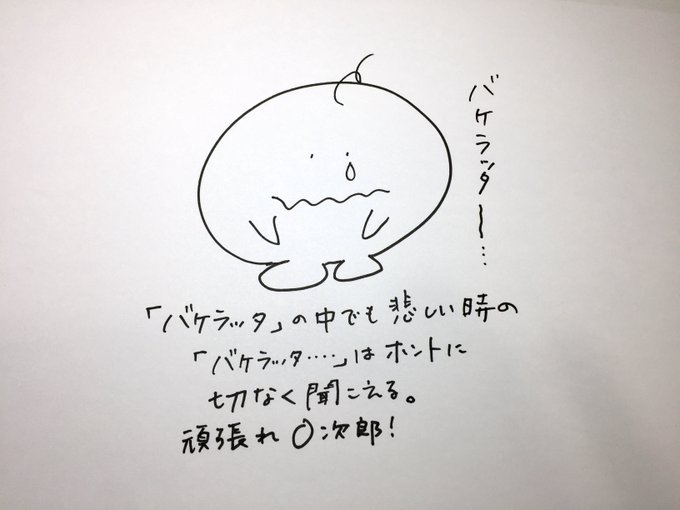 バケラッター…
「バケラッタ」の中でも悲しい時の
「バケラッタ……」はホントに
切なく聞こえる。
頑張れO次郎!